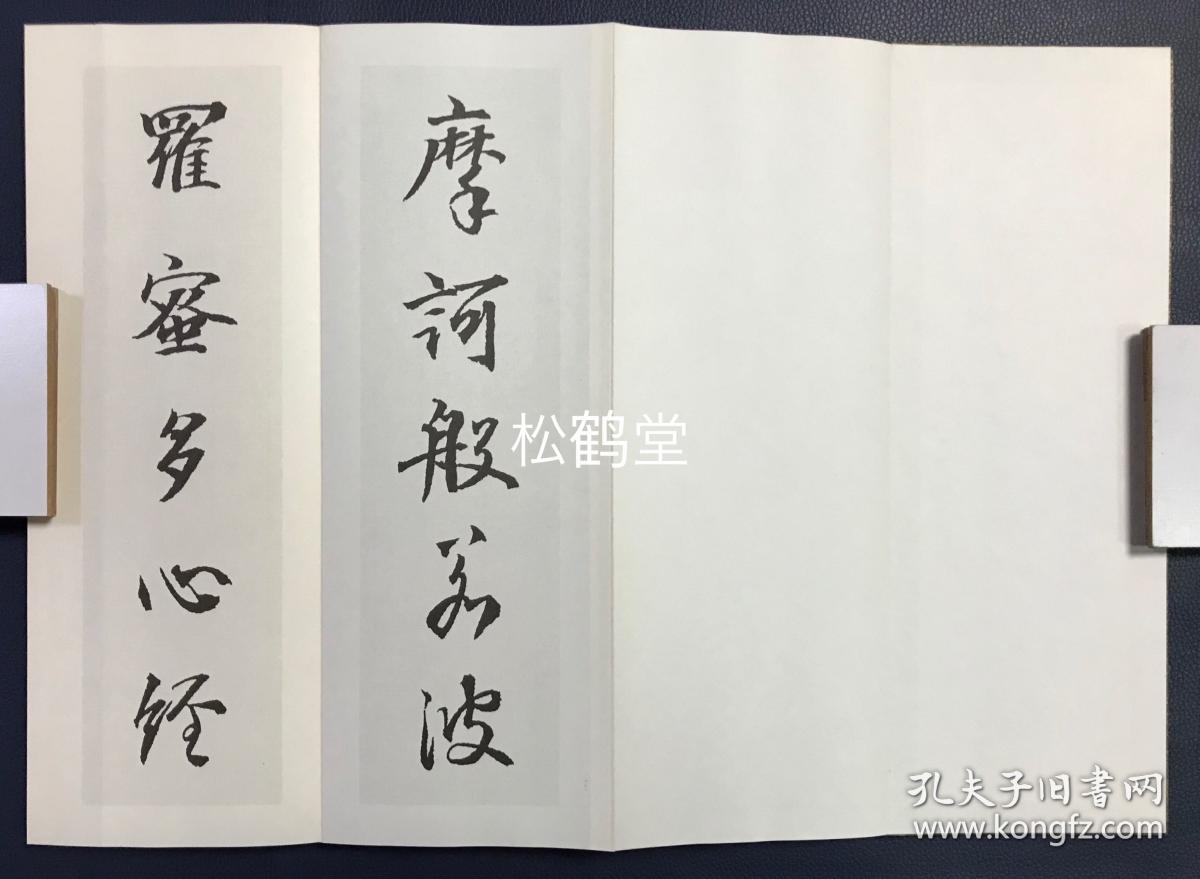 摩訶般若波
羅蜜多心経
松鹤堂
孔夫子旧书网
www.kongfz.com